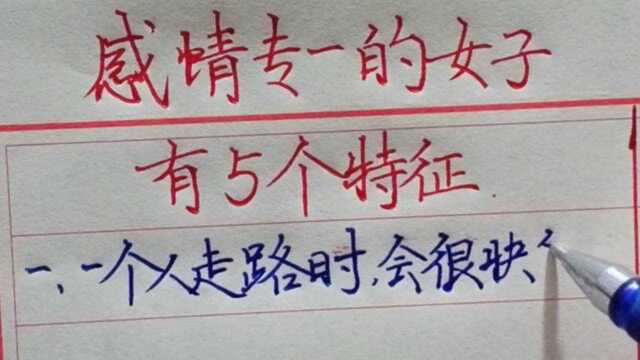 感情专一的女子
有5个特征
一、一个人走路时,会很快